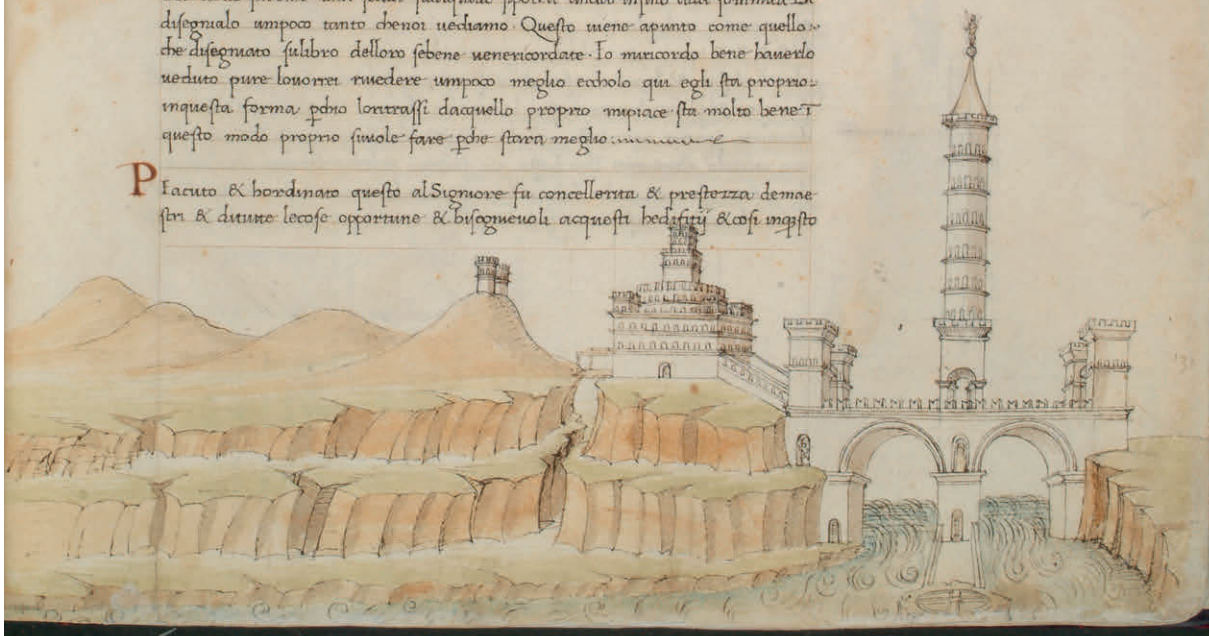 disegnialo umpoco tanto chenoi vediamo · Questo viene apunto come quello
che disegniato sulibro delloro sebene venericordate · Io miricordo bene haverlo
veduto pure lovorrei rivedere umpoco meglio eccholo qui egli sta proprio
inquesta forma pchio loritrassi dacquello proprio mipiace sta molto bene I
questo modo proprio sivole fare pche stara meglio
Piaciuto & hordinato questo al Signiore fu concellerita & prestezza demae
stri & ditutte lecose opportune & bisognievoli acquesti hedifitij & cosi inqsto